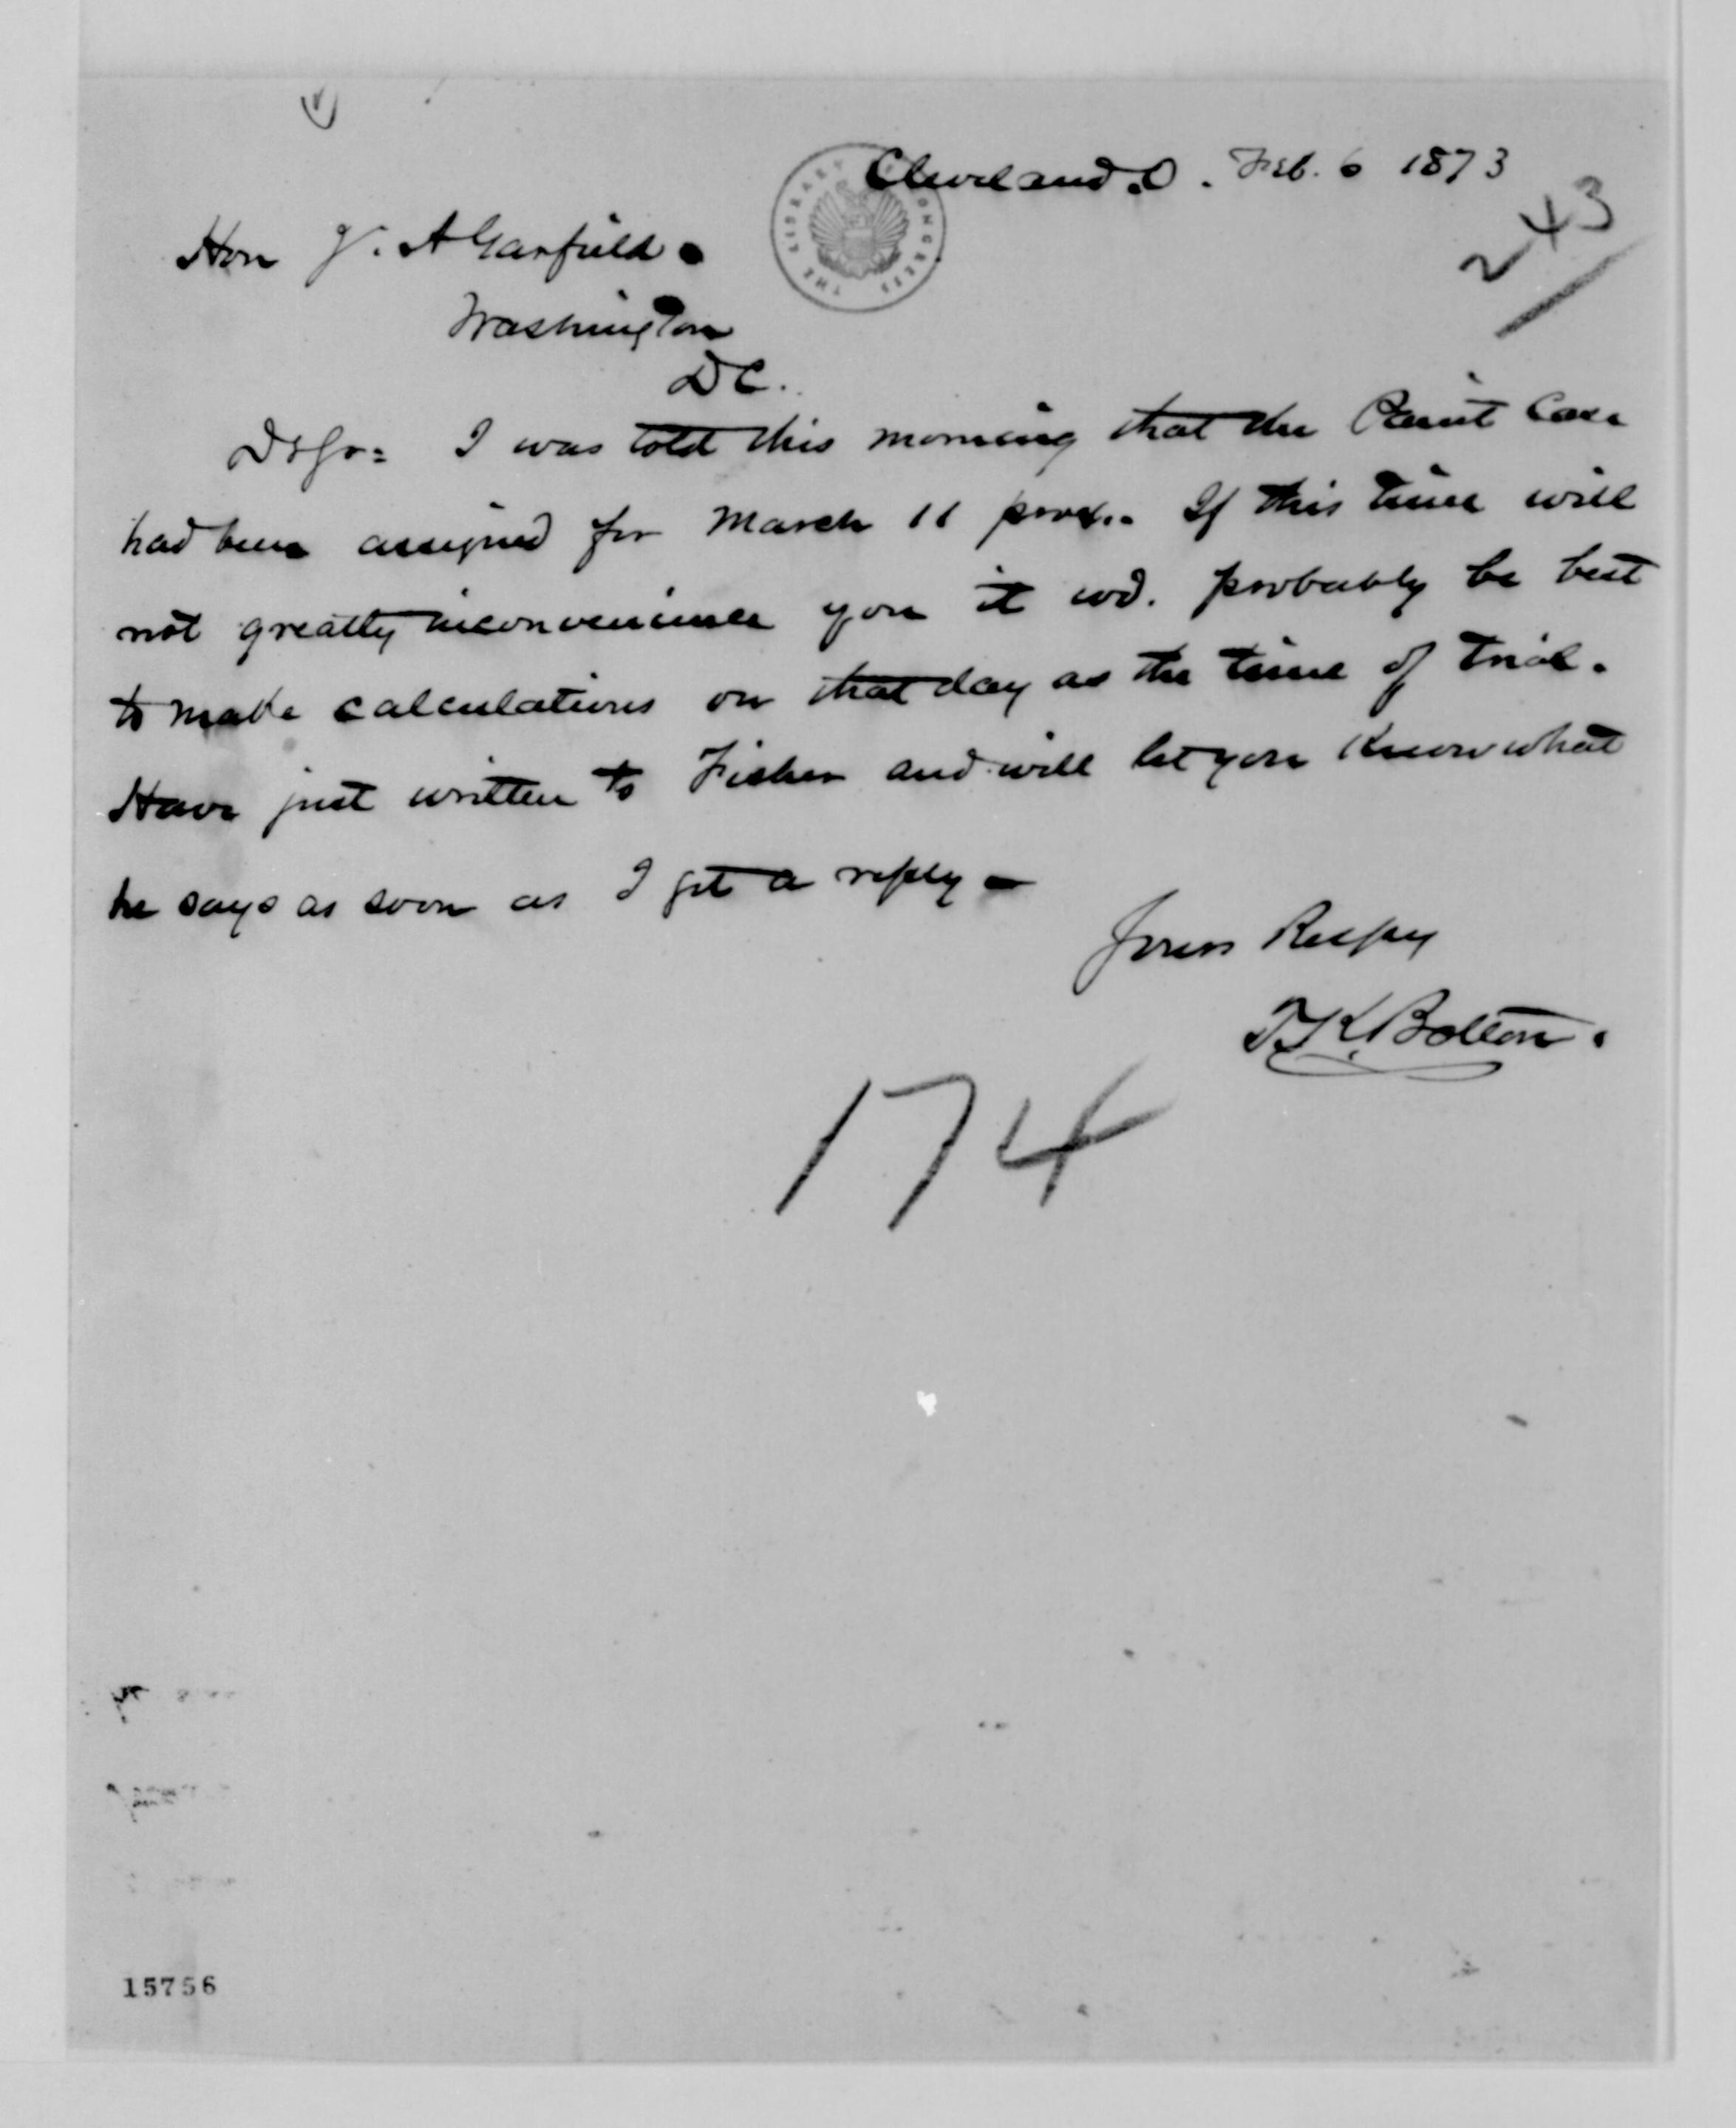 Cleveland. O. Feb. 6 1873
243
Hon J. A Garfield.
THE LIBRARY CONGRESS
Washington
DC.
Dr Sr= I was told this morning that the Paint Case
had been assigned for March 11 prox.. If this time will
not greatly inconvenience you it wd. probably be best
to make calculations on that day as the time of trial.
Have just written to Fisher and will let you know what
he says as soon as I get a reply -
Yours Respy
T.K. Bolton.
174
15756